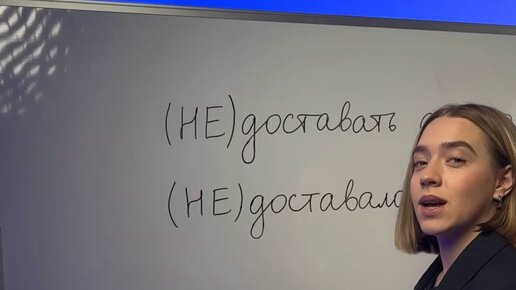 (НЕ)доставать
(НЕ)доставало